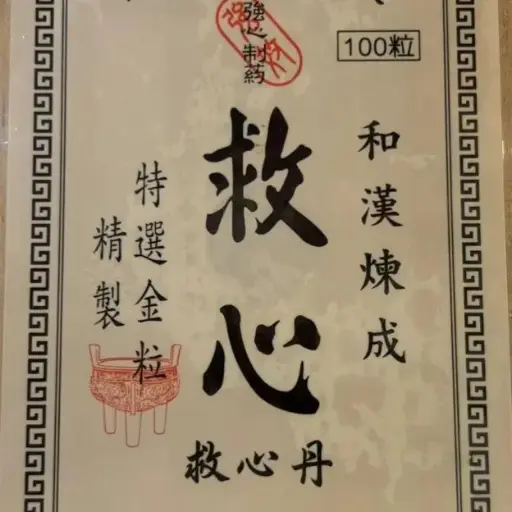 100粒
和漢煉成
強心制药
救心
救心丹
特選金粒
精製